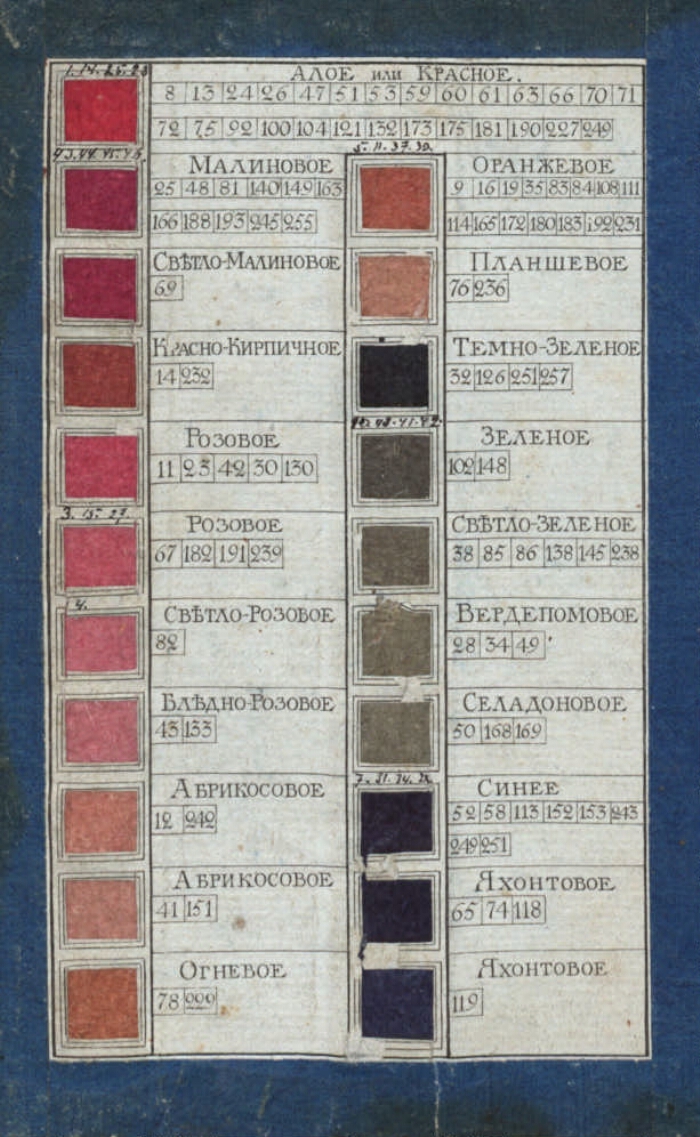 1. 14. 25. 28
АЛОЕ ИЛИ КРАСНОЕ.
8 13 24 26 47 51 53 59 60 61 63 66 70 71
72 75 92 100 104 121 132 173 175 181 190 227 249
43. 44. 45. 46.
МАЛИНОВОЕ
25 48 81 140 149 163
166 188 193 245 255
СВѢТЛО-МАЛИНОВОЕ
69
КРАСНО-КИРПИЧНОЕ
14 232
РОЗОВОЕ
11 23 42 30 130
3. 15. 27.
РОЗОВОЕ
67 182 191 239
4.
СВѢТЛО-РОЗОВОЕ
82
БЛѢДНО-РОЗОВОЕ
43 133
АБРИКОСОВОЕ
12 242
АБРИКОСОВОЕ
41 151
ОГНЕВОЕ
78 229
5. 11. 37. 39.
ОРАНЖЕВОЕ
9 16 19 35 83 84 108 111
114 165 172 180 183 192 231
ПЛАНШЕВОЕ
76 236
ТЕМНО-ЗЕЛЕНОЕ
32 126 251 257
ЗЕЛЕНОЕ
102 148
СВѢТЛО-ЗЕЛЕНОЕ
38 85 86 138 145 238
ВЕРДЕПОМОВОЕ
28 34 49
СЕЛАДОНОВОЕ
50 168 169
СИНЕЕ
52 58 113 152 153 243
249 251
ЯХОНТОВОЕ
65 74 118
ЯХОНТОВОЕ
119